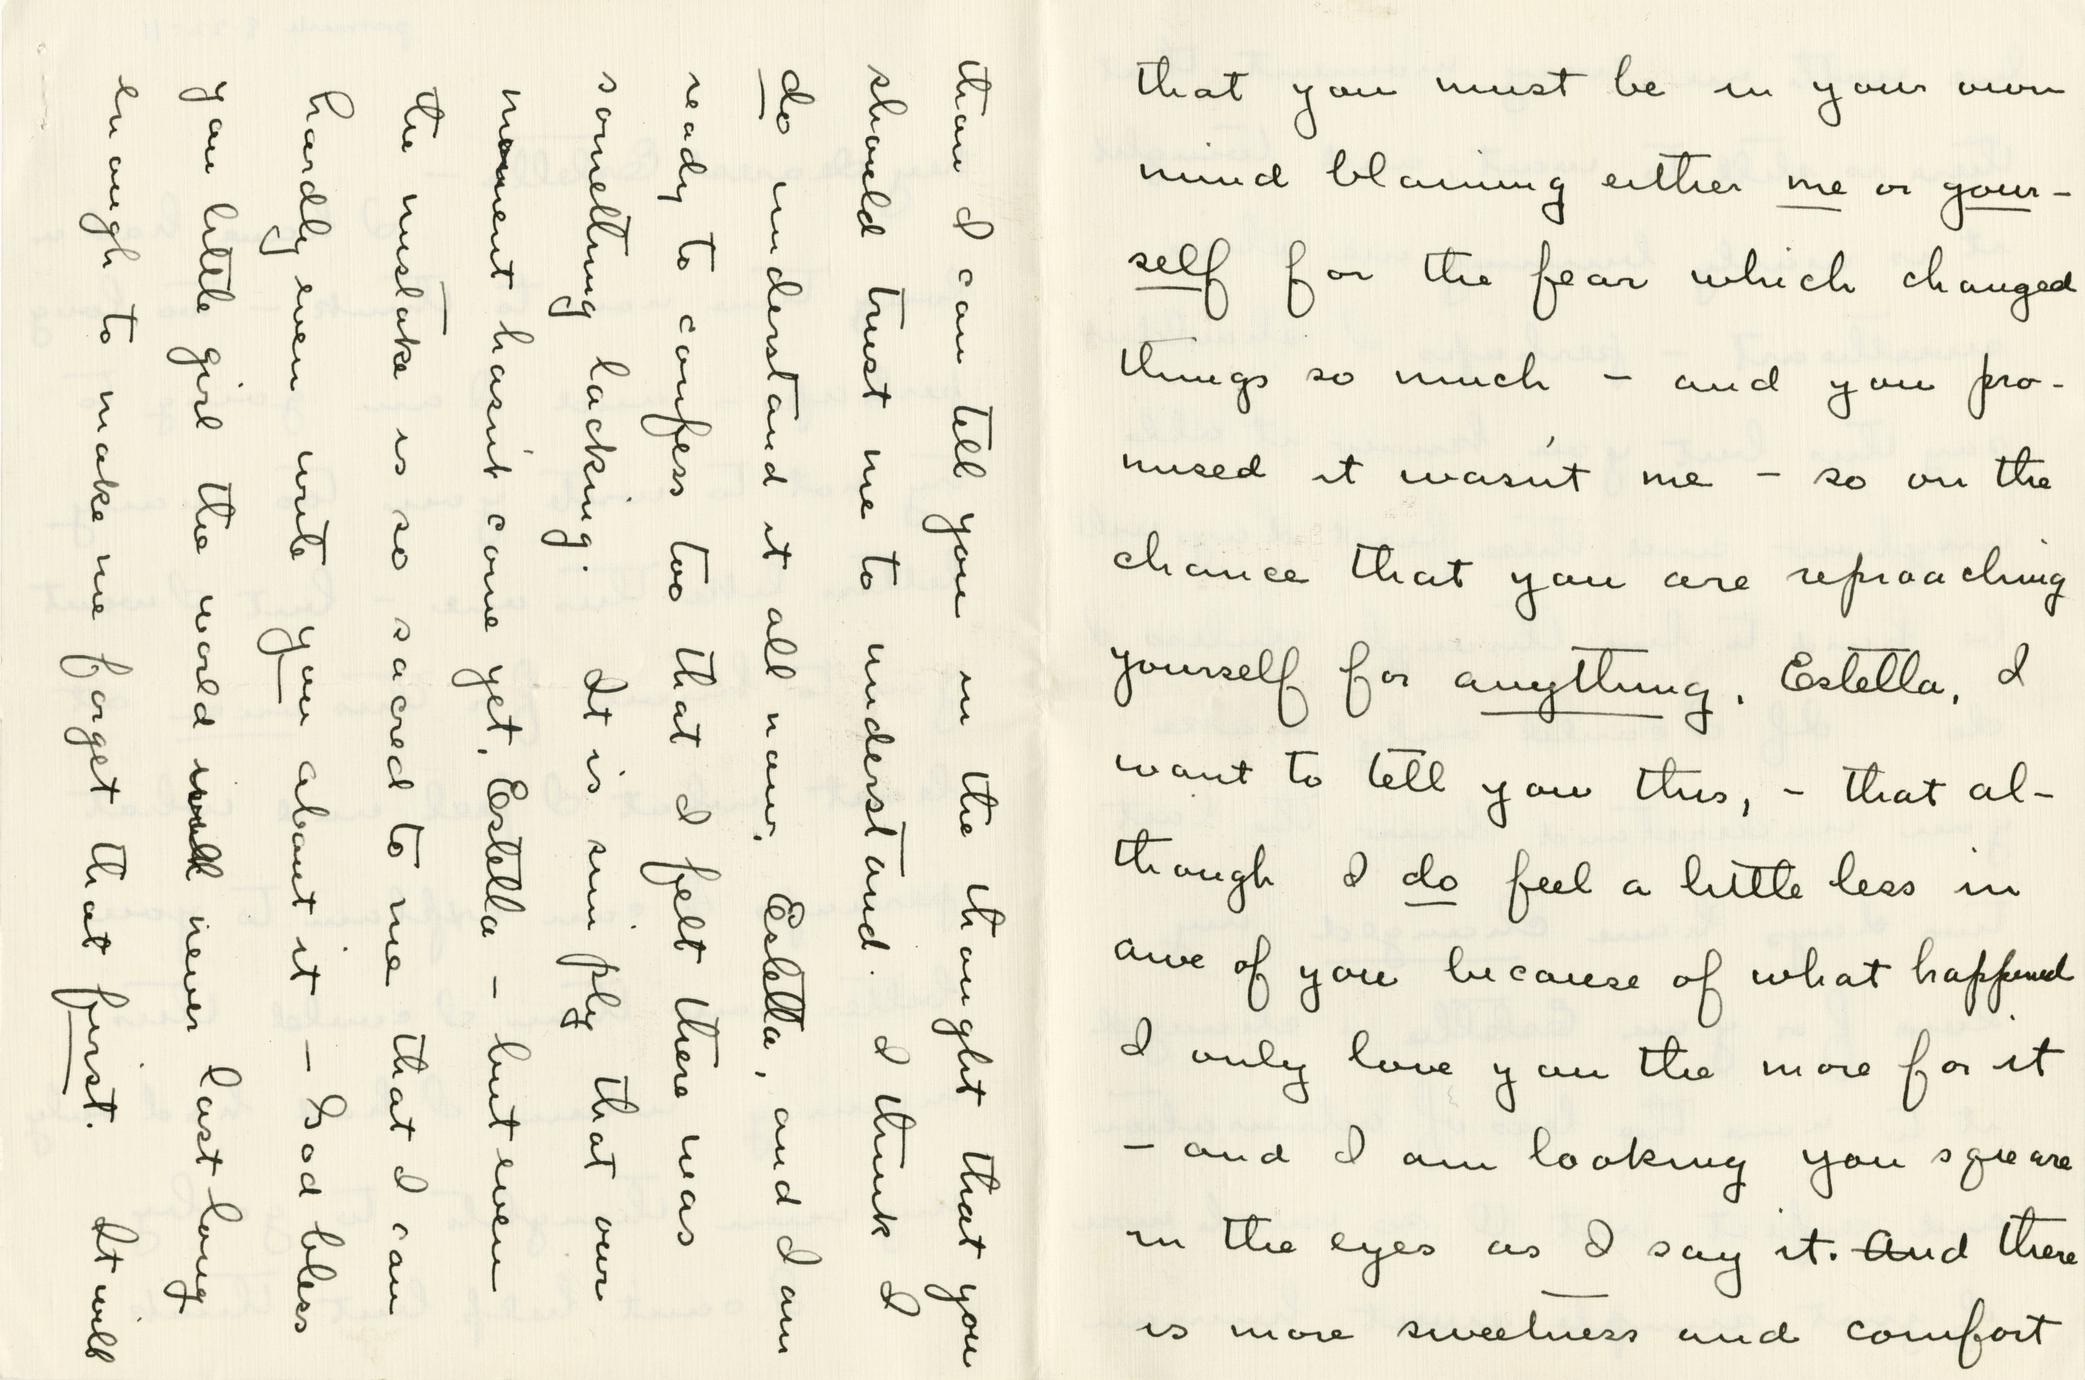 that you must be in your own
mind blaming either me or your-
self for the fear which changed
things so much - and you pro-
mised it wasn't me - so on the
chance that you are reproaching
yourself for anything, Estella, I
want to tell you this, - that al-
though I do feel a little less in
awe of you because of what happened
I only love you the more for it
- and I am looking you square
in the eyes as I say it. And there
is more sweetness and comfort
than I can tell you in the thought that you
should trust me to understand. I think I
do understand it all now, Estella, and I am
ready to confess too that I felt there was
something lacking. It is simply that our
moment hasn't come yet, Estella - but even
the mistake is so sacred to me that I can
hardly even write you about it - God bless
you little girl the world will never last long
enough to make me forget that first. It will